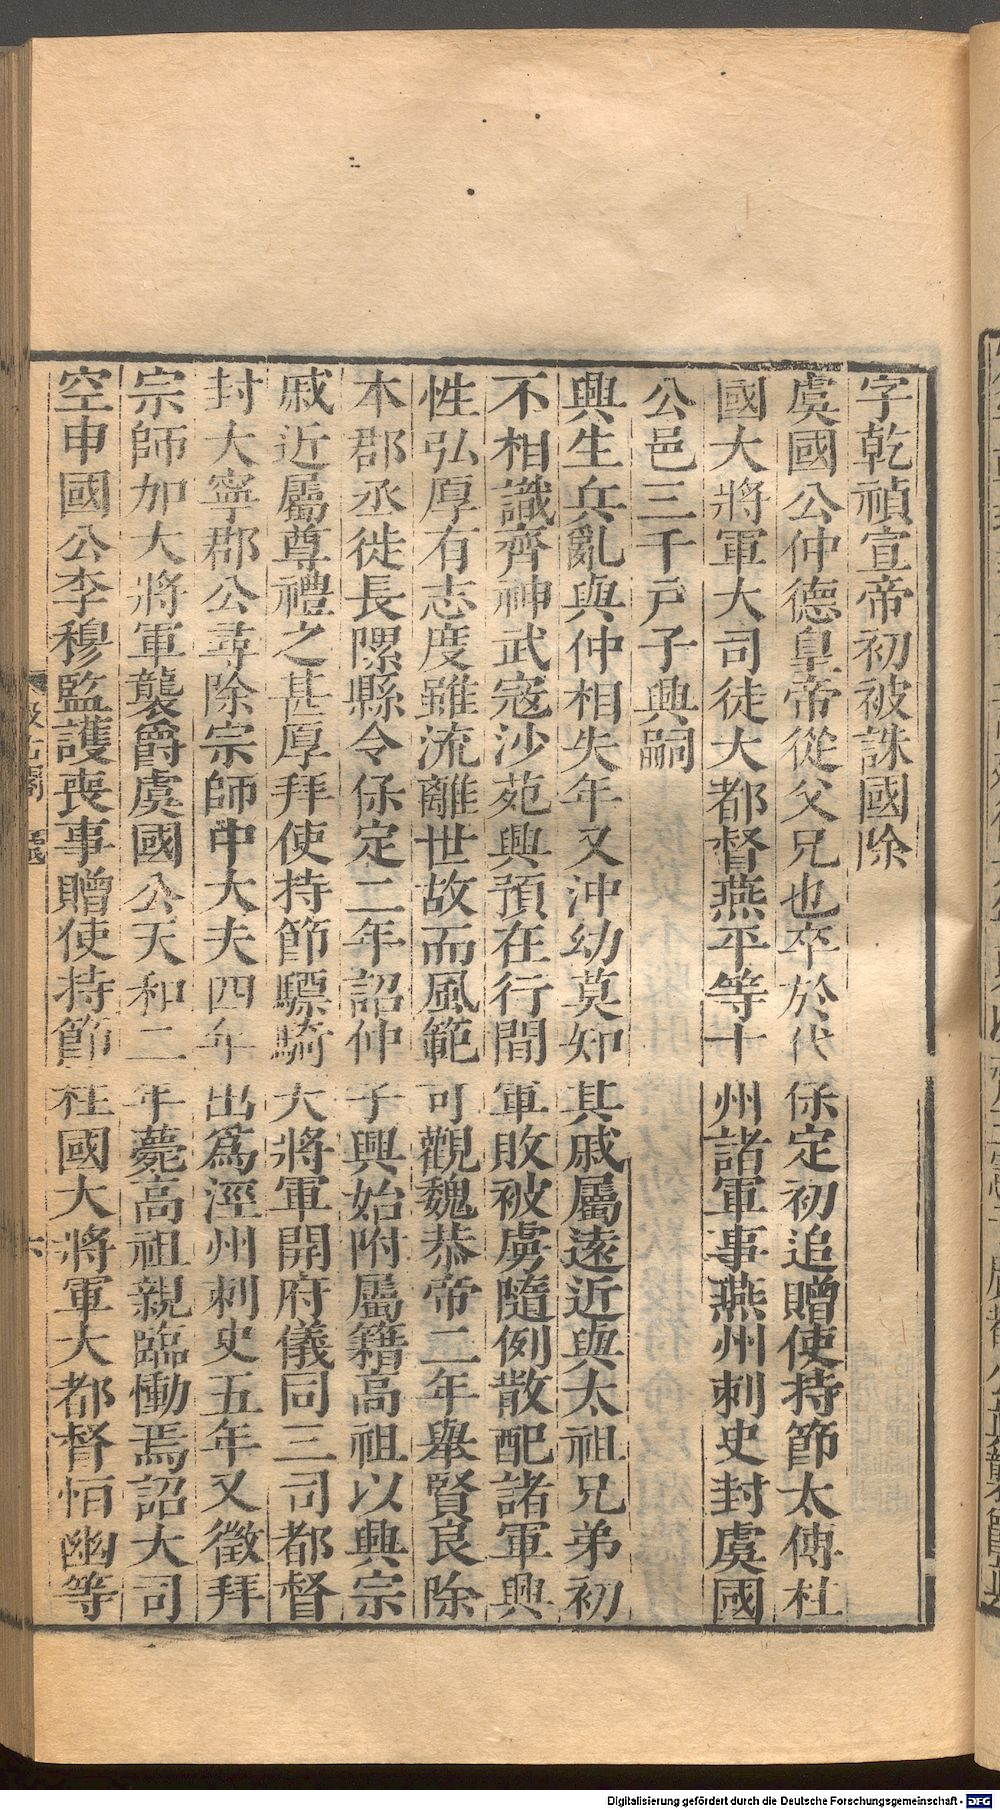 字乾禎宣帝初被誅國除
虞國公仲德皇帝從父兄也卒於代保定初追贈使持節太傅柱
國大將軍大司徒大都督燕平等十州諸軍事燕州刺史封虞國
公邑三千戸子興嗣
興生兵亂與仲相失年又沖幼莫知其戚屬遠近與太祖兄弟初
不相識齊神武寇沙苑興預在行間軍敗被虜隨例散配諸軍興
性弘厚有志度雖流離世故而風範可觀魏恭帝二年舉賢良除
本郡丞徙長隰縣令保定二年詔仲子興始附屬籍高祖以興宗
戚近屬尊禮之甚厚拜使持節驃騎大將軍開府儀同三司都督
封大寧郡公尋除宗師中大夫四年出爲涇州刺史五年又徵拜
宗師加大將軍襲爵虞國公天和二年薨高祖親臨慟焉詔大司
空申國公李穆監護喪事贈使持節柱國大將軍大都督恒幽等
Digitalisierung gefördert durch die Deutsche Forschungsgemeinschaft - DFG